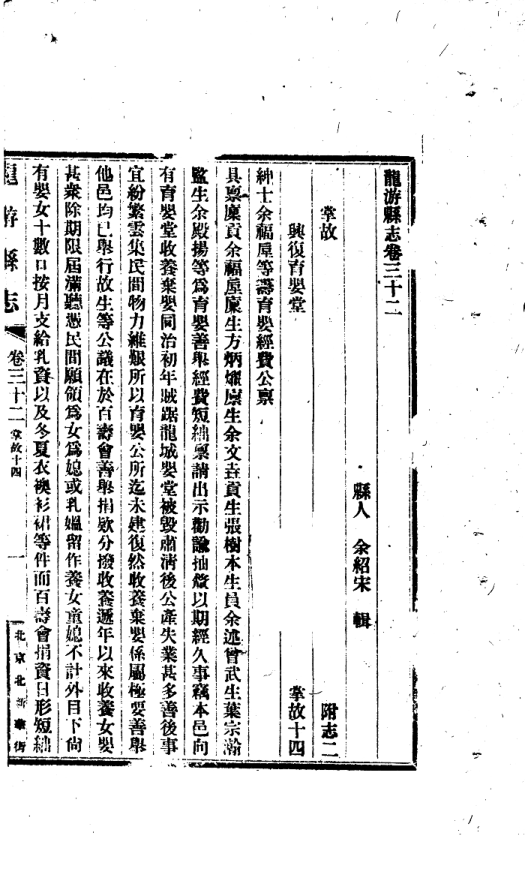 龍游縣志卷三十二
縣人　余紹宋　輯
掌故　附志二
興復育嬰堂　掌故十四
紳士余福屋等籌育嬰經費公稟
具稟廩貢余福屋廩生方炳燿廩生余文垚貢生張樹本生員余述曾武生葉宗瀚
監生余殿揚等為育嬰善舉經費短絀稟請出示勸諭抽徵以期經久事竊本邑向
有育嬰堂收養棄嬰同治初年賊踞龍城嬰堂被毀肅清後公產失業甚多善後事
宜紛繁雲集民間物力維艱所以育嬰公所迄未建復然收養棄嬰係屬極要善舉
他邑均已舉行故生等公議在於百壽會善舉捐欵分撥收養遞年以來收養女嬰
甚衆除期限屆滿聽憑民間願領為女為媳或乳媼留作養女童媳不計外目下尙
有嬰女十數口按月支給乳資以及冬夏衣襖衫裙等件而百壽會捐資日形短絀
龍游縣志
卷三十二　掌故十四
一
北京北新華街